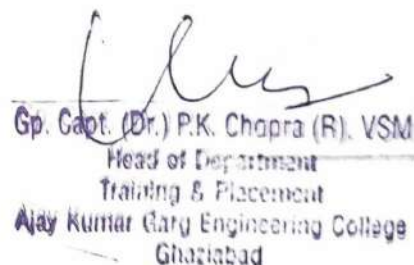 Gp. Capt. (Dr.) P.K. Chopra (R). VSM
Head of Department
Training & Placement
Ajay Kumar Garg Engineering College
Ghaziabad